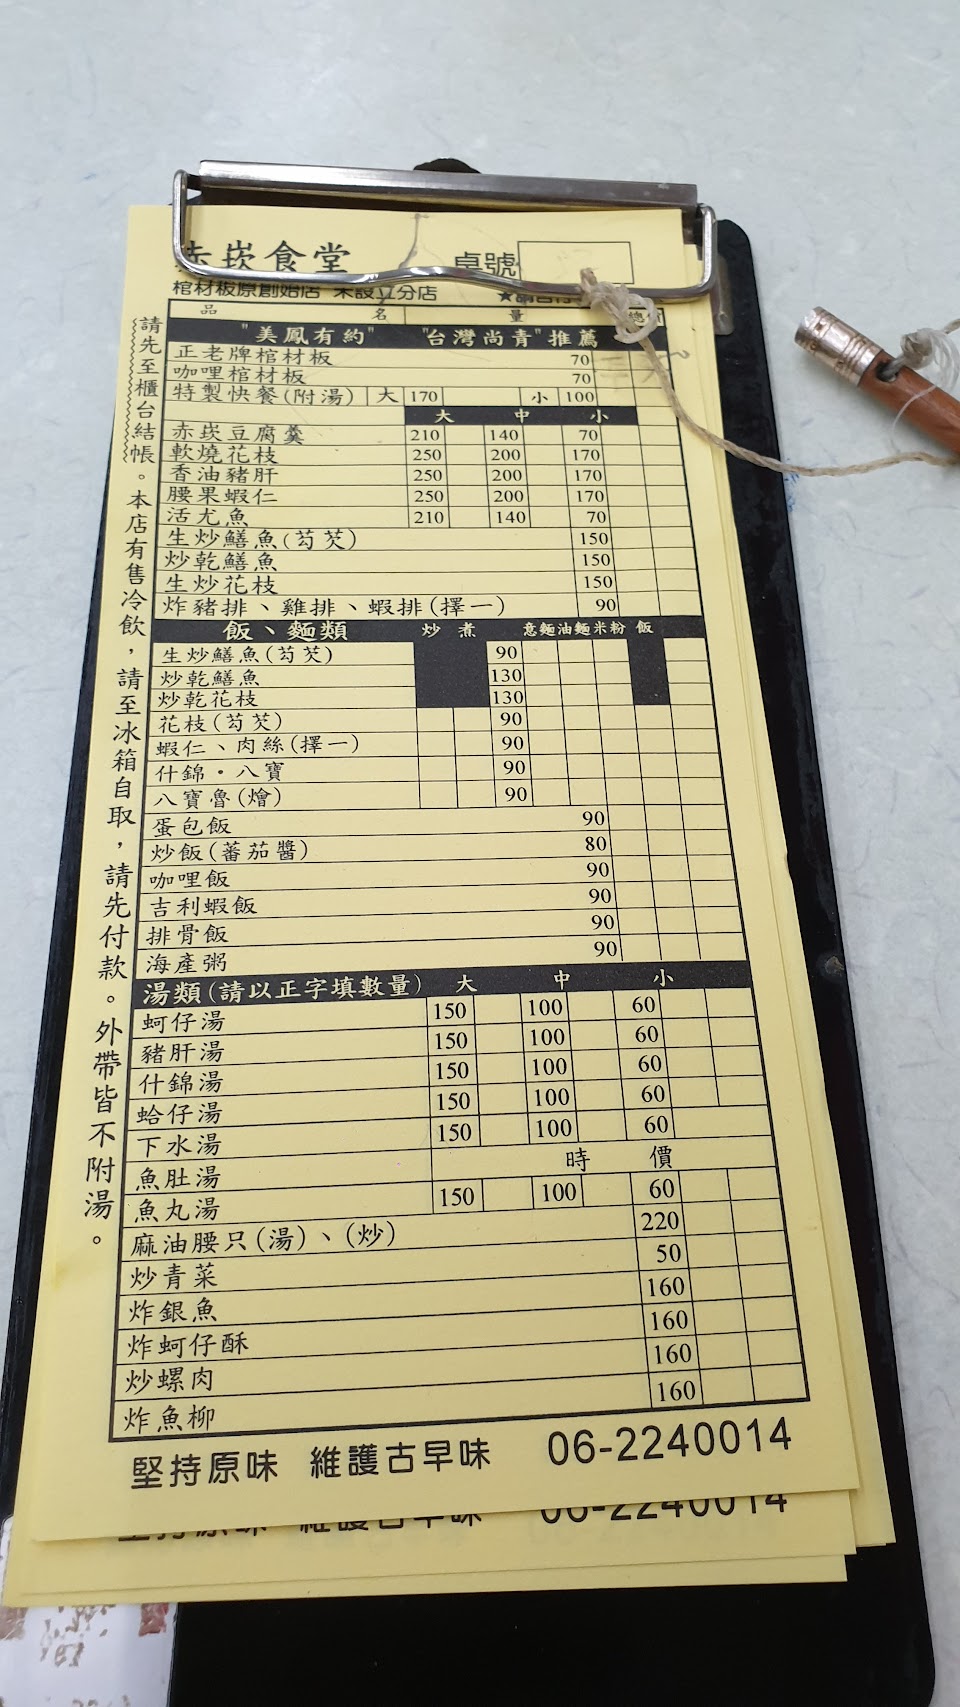 赤崁食堂 桌號
棺材板原創始店 未設立分店
品 名 量
"美鳳有約" "台灣尚青"推薦
正老牌棺材板 70
咖哩棺材板 70
特製快餐(附湯) 大 170 小 100
大 中 小
赤崁豆腐羹 210 140 70
軟燒花枝 250 200 170
香油豬肝 250 200 170
腰果蝦仁 250 200 170
活尤魚 210 140 70
生炒鱔魚(芶芡) 150
炒乾鱔魚 150
生炒花枝 150
炸豬排、雞排、蝦排(擇一) 90
飯、麵類 炒 煮 意麵 油麵 米粉 飯
生炒鱔魚(芶芡) 90
炒乾鱔魚 130
炒乾花枝 130
花枝(芶芡) 90
蝦仁、肉絲(擇一) 90
什錦・八寶 90
八寶魯(燴) 90
蛋包飯 90
炒飯(蕃茄醬) 80
咖哩飯 90
吉利蝦飯 90
排骨飯 90
海產粥 90
湯類(請以正字填數量) 大 中 小
蚵仔湯 150 100 60
豬肝湯 150 100 60
什錦湯 150 100 60
蛤仔湯 150 100 60
下水湯 150 100 60
魚肚湯 時 價
魚丸湯 150 100 60
麻油腰只(湯)、(炒) 220
炒青菜 50
炸銀魚 160
炸蚵仔酥 160
炒螺肉 160
炸魚柳 160
堅持原味 維護古早味 06-2240014
請先至櫃台結帳。本店有售冷飲，請至冰箱自取，請先付款。外帶皆不附湯。